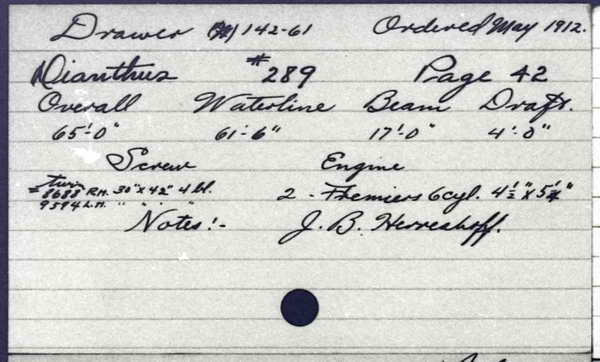 Drawer 142-61 Ordered May 1912.
Dianthus #289 Page 42
Overall Waterline Beam Draft.
65'-0" 61'-6" 17'-0" 4'-0"
Screw Engine
twin
#8688 R.H. 30"x42" 4 bl. 2 - Fremiers 6 cyl. 4½"x5¼"
9594 L.H. " " " "
Notes:- J. B. Herreshoff.